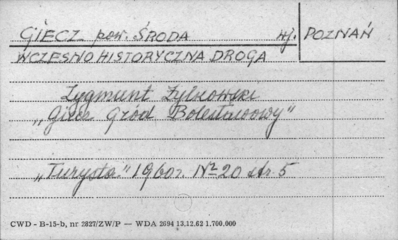 GIECZ pow. ŚRODA wj. POZNAŃ
WCZESNOHISTORYCZNA DROGA
Zygmunt
„Giecz Gród Bolesławowy"
„Turysta" 1960 r. Nr 20 str. 5
CWD - B-15-b, nr 2827/ZW/P — WDA 2694 13.12.62 1.700.000